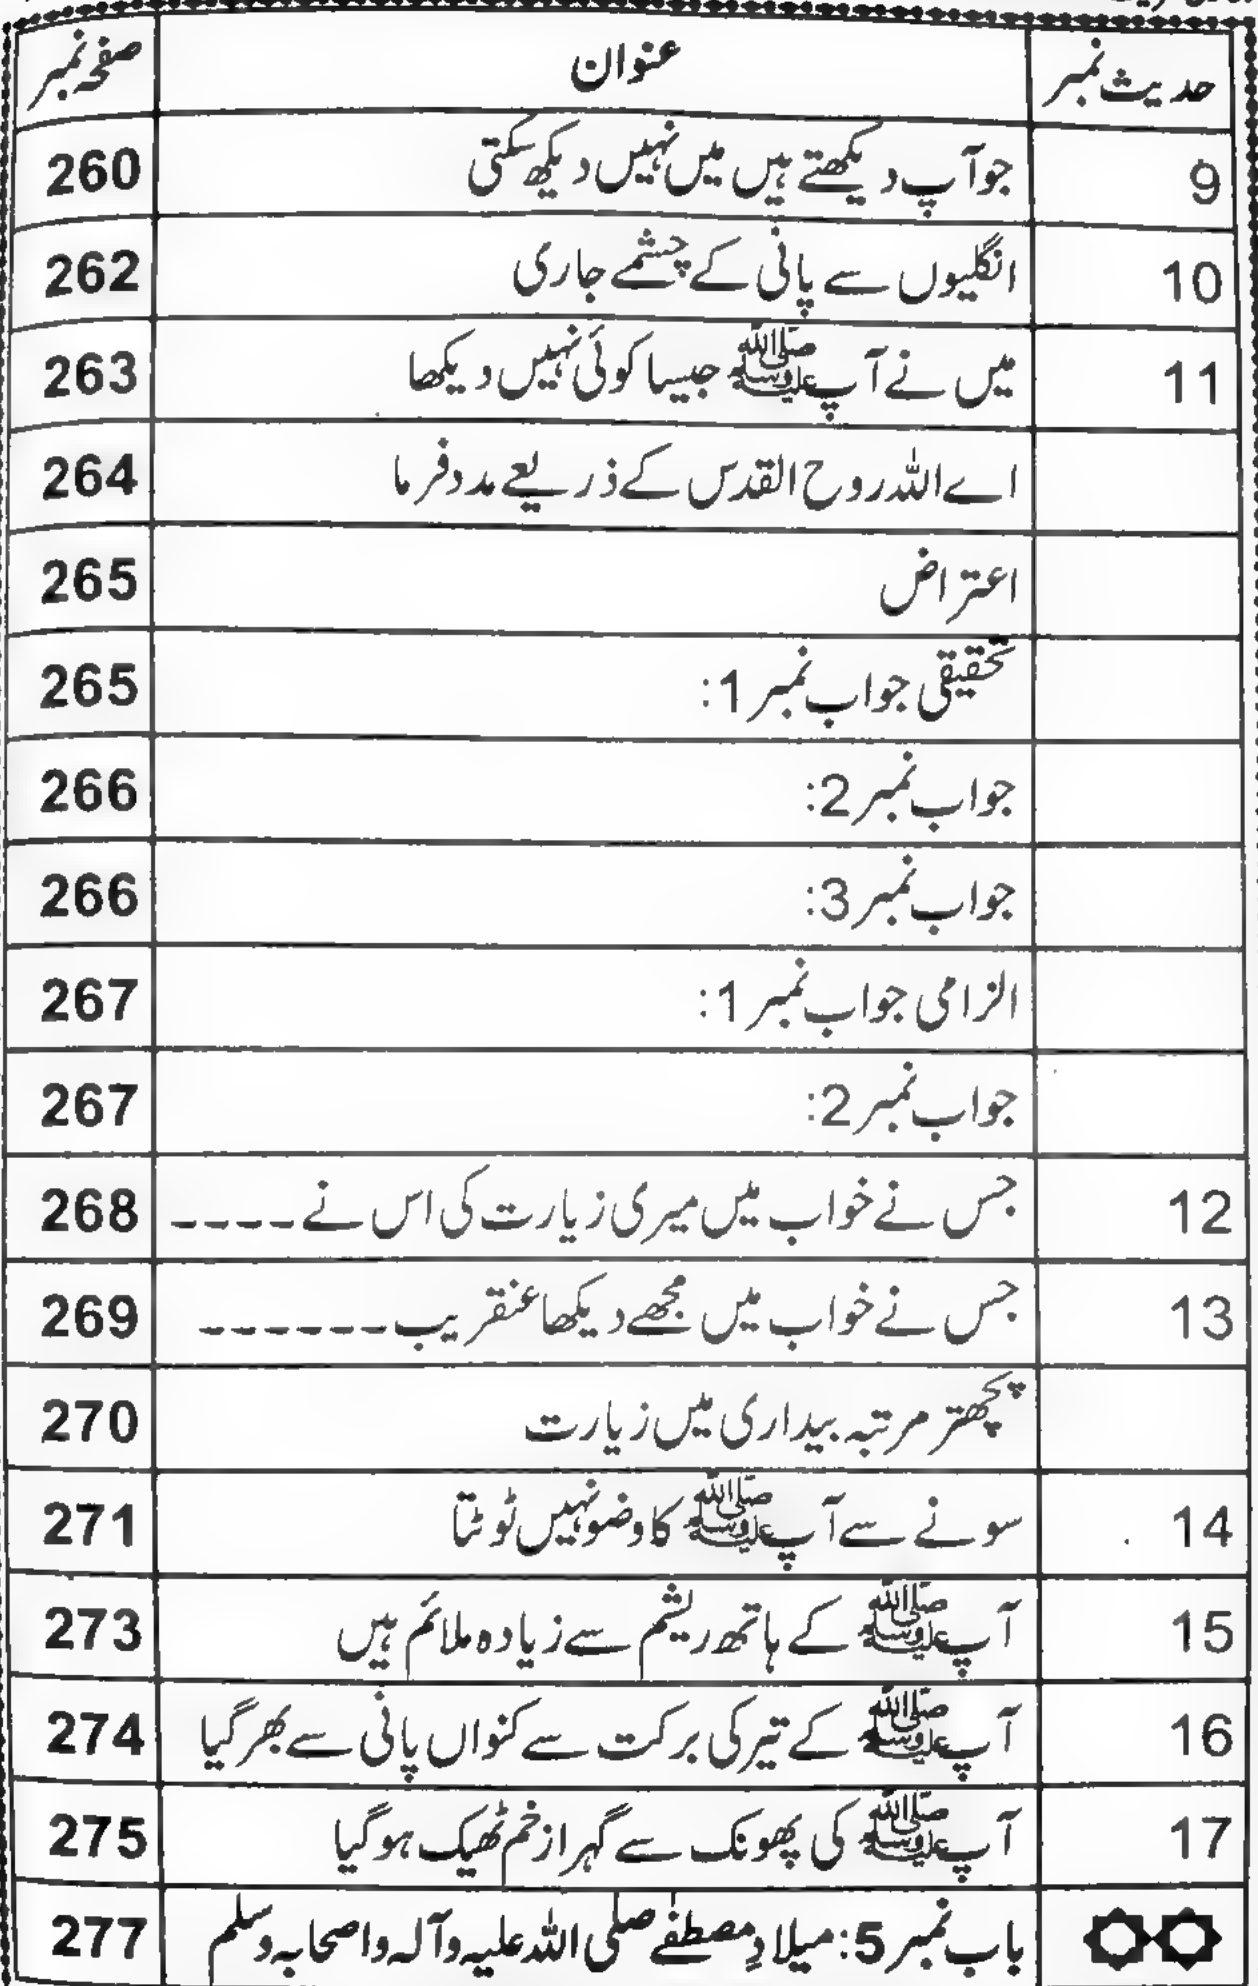 حدیث نمبر عنوان صفحہ نمبر
9 جو آپ دیکھتے ہیں میں نہیں دیکھ سکتی 260
10 انگلیوں سے پانی کے چشمے جاری 262
11 میں نے آپ ﷺ جیسا کوئی نہیں دیکھا 263
اے اللہ روح القدس کے ذریعے مدد فرما 264
اعتراض 265
تحقیقی جواب نمبر 1: 265
جواب نمبر 2: 266
جواب نمبر 3: 266
الزامی جواب نمبر 1: 267
جواب نمبر 2: 267
12 جس نے خواب میں میری زیارت کی اس نے ---- 268
13 جس نے خواب میں مجھے دیکھا عنقریب ------ 269
پچھتر مرتبہ بیداری میں زیارت 270
14 سونے سے آپ ﷺ کا وضو نہیں ٹوٹتا 271
15 آپ ﷺ کے ہاتھ ریشم سے زیادہ ملائم ہیں 273
16 آپ ﷺ کے تیر کی برکت سے کنواں پانی سے بھر گیا 274
17 آپ ﷺ کی پھونک سے گہرا زخم ٹھیک ہو گیا 275
باب نمبر 5: میلادِ مصطفےٰ صلی اللہ علیہ وآلہ واصحابہ وسلم 277